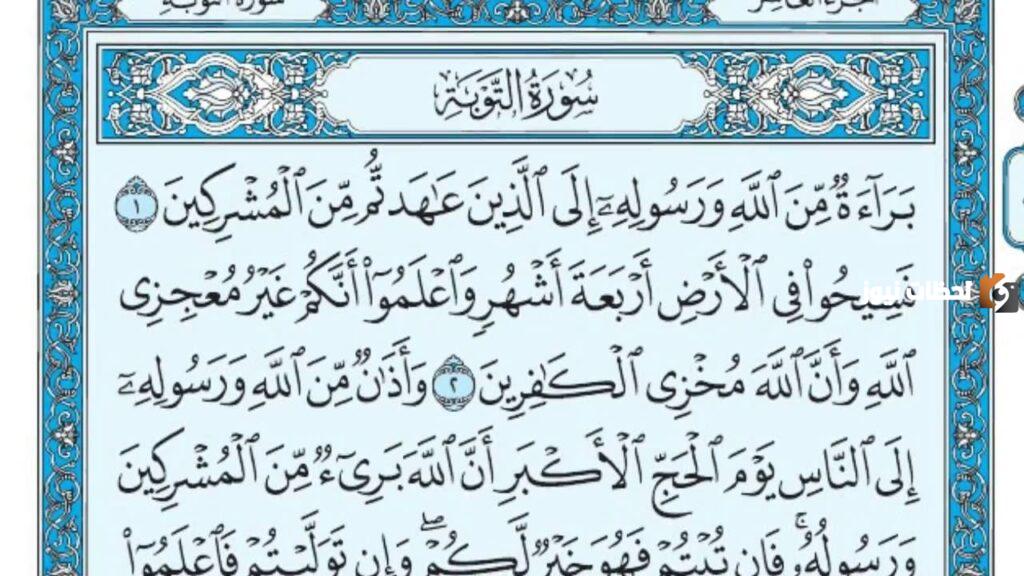 سُورَةُ التَّوْبَةِ
بَرَآءَةٌ مِّنَ ٱللَّهِ وَرَسُولِهِۦٓ إِلَى ٱلَّذِينَ عَٰهَدتُّم مِّنَ ٱلْمُشْرِكِينَ ١
فَسِيحُوا۟ فِى ٱلْأَرْضِ أَرْبَعَةَ أَشْهُرٍ وَٱعْلَمُوٓا۟ أَنَّكُمْ غَيْرُ مُعْجِزِى
ٱللَّهِ وَأَنَّ ٱللَّهَ مُخْزِى ٱلْكَٰفِرِينَ ٢ وَأَذَٰنٌ مِّنَ ٱللَّهِ وَرَسُولِهِۦٓ
إِلَى ٱلنَّاسِ يَوْمَ ٱلْحَجِّ ٱلْأَكْبَرِ أَنَّ ٱللَّهَ بَرِىٓءٌ مِّنَ ٱلْمُشْرِكِينَ
وَرَسُولُهُۥ ۚ فَإِن تُبْتُمْ فَهُوَ خَيْرٌ لَّكُمْ ۖ وَإِن تَوَلَّيْتُمْ فَٱعْلَمُوٓا۟
لحظات نيوز